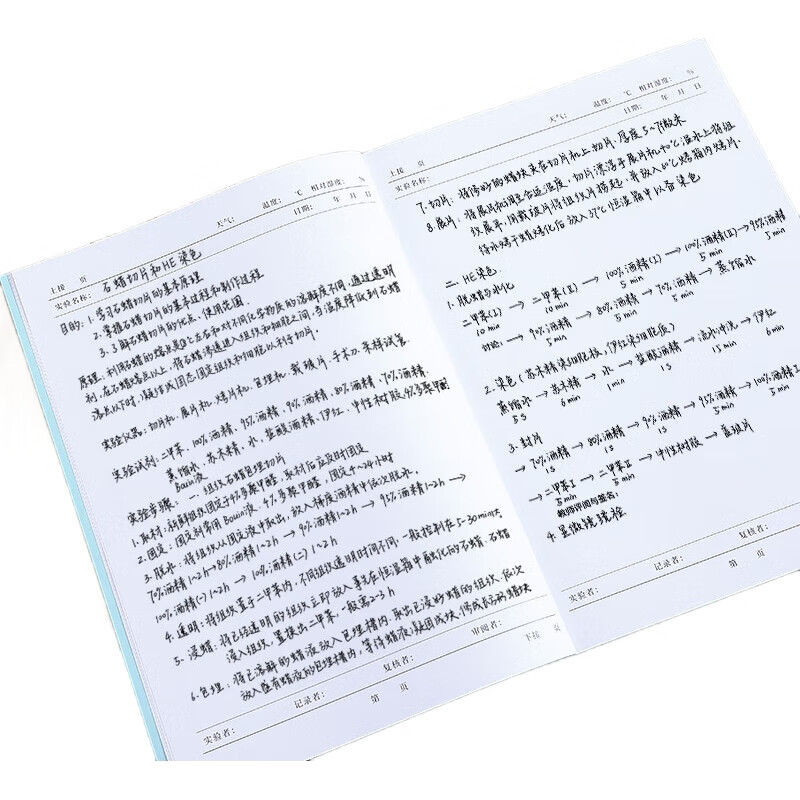 天气： 温度： ℃ 相对湿度： %
上接 页 日期： 年 月 日
实验名称： 石蜡切片和HE染色
目的：1.学习石蜡切片的基本原理
2.掌握石蜡切片的基本过程和制作过程
3.了解石蜡切片的优点、使用范围
原理：利用石蜡的熔点是 ℃左右和对不同化学物质的溶解度不同，通过透明
剂，在石蜡熔点以上，将石蜡渗透进入组织和细胞之间，当温度降低到石蜡
熔点以下时，凝结成固态固定组织和细胞以利于切片。
实验仪器：切片机、展片机、烤片机、包埋机、载玻片、手术刀、采样试管
实验试剂：二甲苯、100%酒精、95%酒精、90%酒精、80%酒精、70%酒精、
蒸馏水、苏木精、水、盐酸酒精、伊红、中性树胶、4%多聚甲醛
Bouin液
实验步骤：一、组织石蜡包埋切片
1.取材：新鲜组织固定于4%多聚甲醛，取材后应及时固定
2.固定：固定剂常用Bouin液、4%多聚甲醛，固定4~24小时
3.脱水：将组织从固定液中取出，放入梯度酒精中依次脱水。
70%酒精1~2h→80%酒精1~2h→9 %酒精1~2h→95%酒精1~2h→
100%酒精(一)1~2h→100%酒精(二)1~2h
4.透明：将组织置于二甲苯内，不同组织透明时间不同，一般控制在5-30min
5.浸蜡：将已经透明的组织立即放入事先在恒温箱中融化的石蜡，石蜡
浸入组织，置换出二甲苯，一般需2~3h
6.包埋：将已溶解的蜡液放入包埋槽内，取出已浸好蜡的组织，依次
放入盛有蜡液的包埋槽内，等待蜡液凝固成块，修成长方形蜡块
实验者： 记录者： 复核者： 审阅者：
第 页 下接 页
天气： 温度： ℃ 相对湿度： %
上接 页 日期： 年 月 日
实验名称：
7.切片：将修好的蜡块夹在切片机上切片，厚度5~7微米
8.展片：将展片机调至合适温度，切片漂浮于展片机40℃温水上将组
织展平，用载玻片将组织片捞起，并放入 ℃烤箱内烤片。
待水烤干蜡烤化后放入37℃恒温箱中以备染色
二、HE染色：
1.脱蜡与水化
二甲苯(I)→二甲苯(II)→100%酒精(I)→100%酒精(II)→95%酒精
10min 10min 5min 5min 5min
→90%酒精→80%酒精→70%酒精→蒸馏水
5min 5min 5min
2.染色(苏木精染细胞核，伊红染细胞质)
蒸馏水→苏木精→水→盐酸酒精→流水冲洗→伊红
5s 6min 1min 1s 15min 6min
3.封片
→70%酒精→80%酒精→9 %酒精→95%酒精→100%酒精I
1s 1s 1s 5min 5min
→二甲苯I→二甲苯II→中性树胶→盖玻片
5min 5min
教师评阅与签名：
4.显微镜镜检
实验者： 记录者： 复核者：
第 页